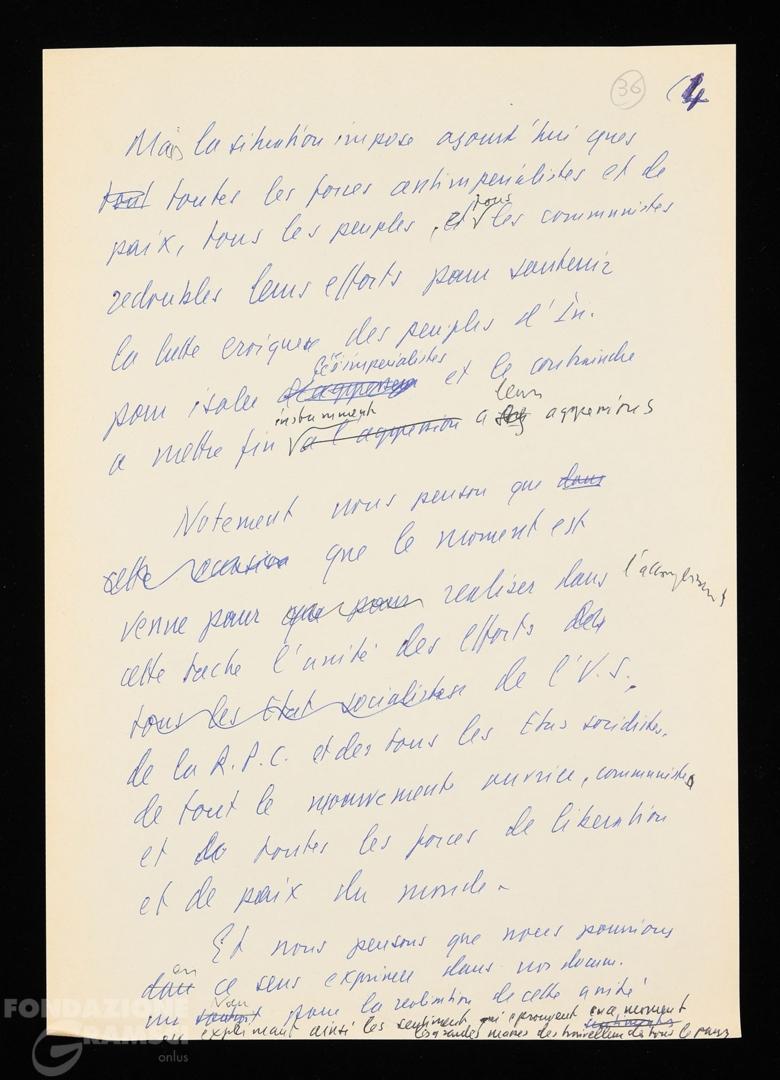 36 4
Mais la situation impose ajourd'hui ques
tout toutes les forces antimperialistes et de
paix, tous les peuples, et tous les communistes
redoubles leurs efforts pour soutenir
la lutte eroique des peuples d'In.
pour isoler les imperialistes et le contraindre
a mettre fin a l'aggression a leurs aggressions
Notement nous penson que dans
cette occasion que le moment est
venne pour que pour realiser dans
cette tache l'unité des efforts des
tous les Etat socialistes de l'U.S.,
de la R.P.C. et des tous les Etas socialistes,
de tout le mouvement ouvrier, communiste
et de toutes les forces de liberation
et de paix du monde.
Et nous pensons que nous pourrions
dans en ce sens exprimer dans nos docum.
un pour la realisation de cette unité
exprimant ainsi les sentiment qui eprouvent en ce moment
les grandes masses des travailleurs de tous le pays
FONDAZIONE
GRAMSCI
onlus